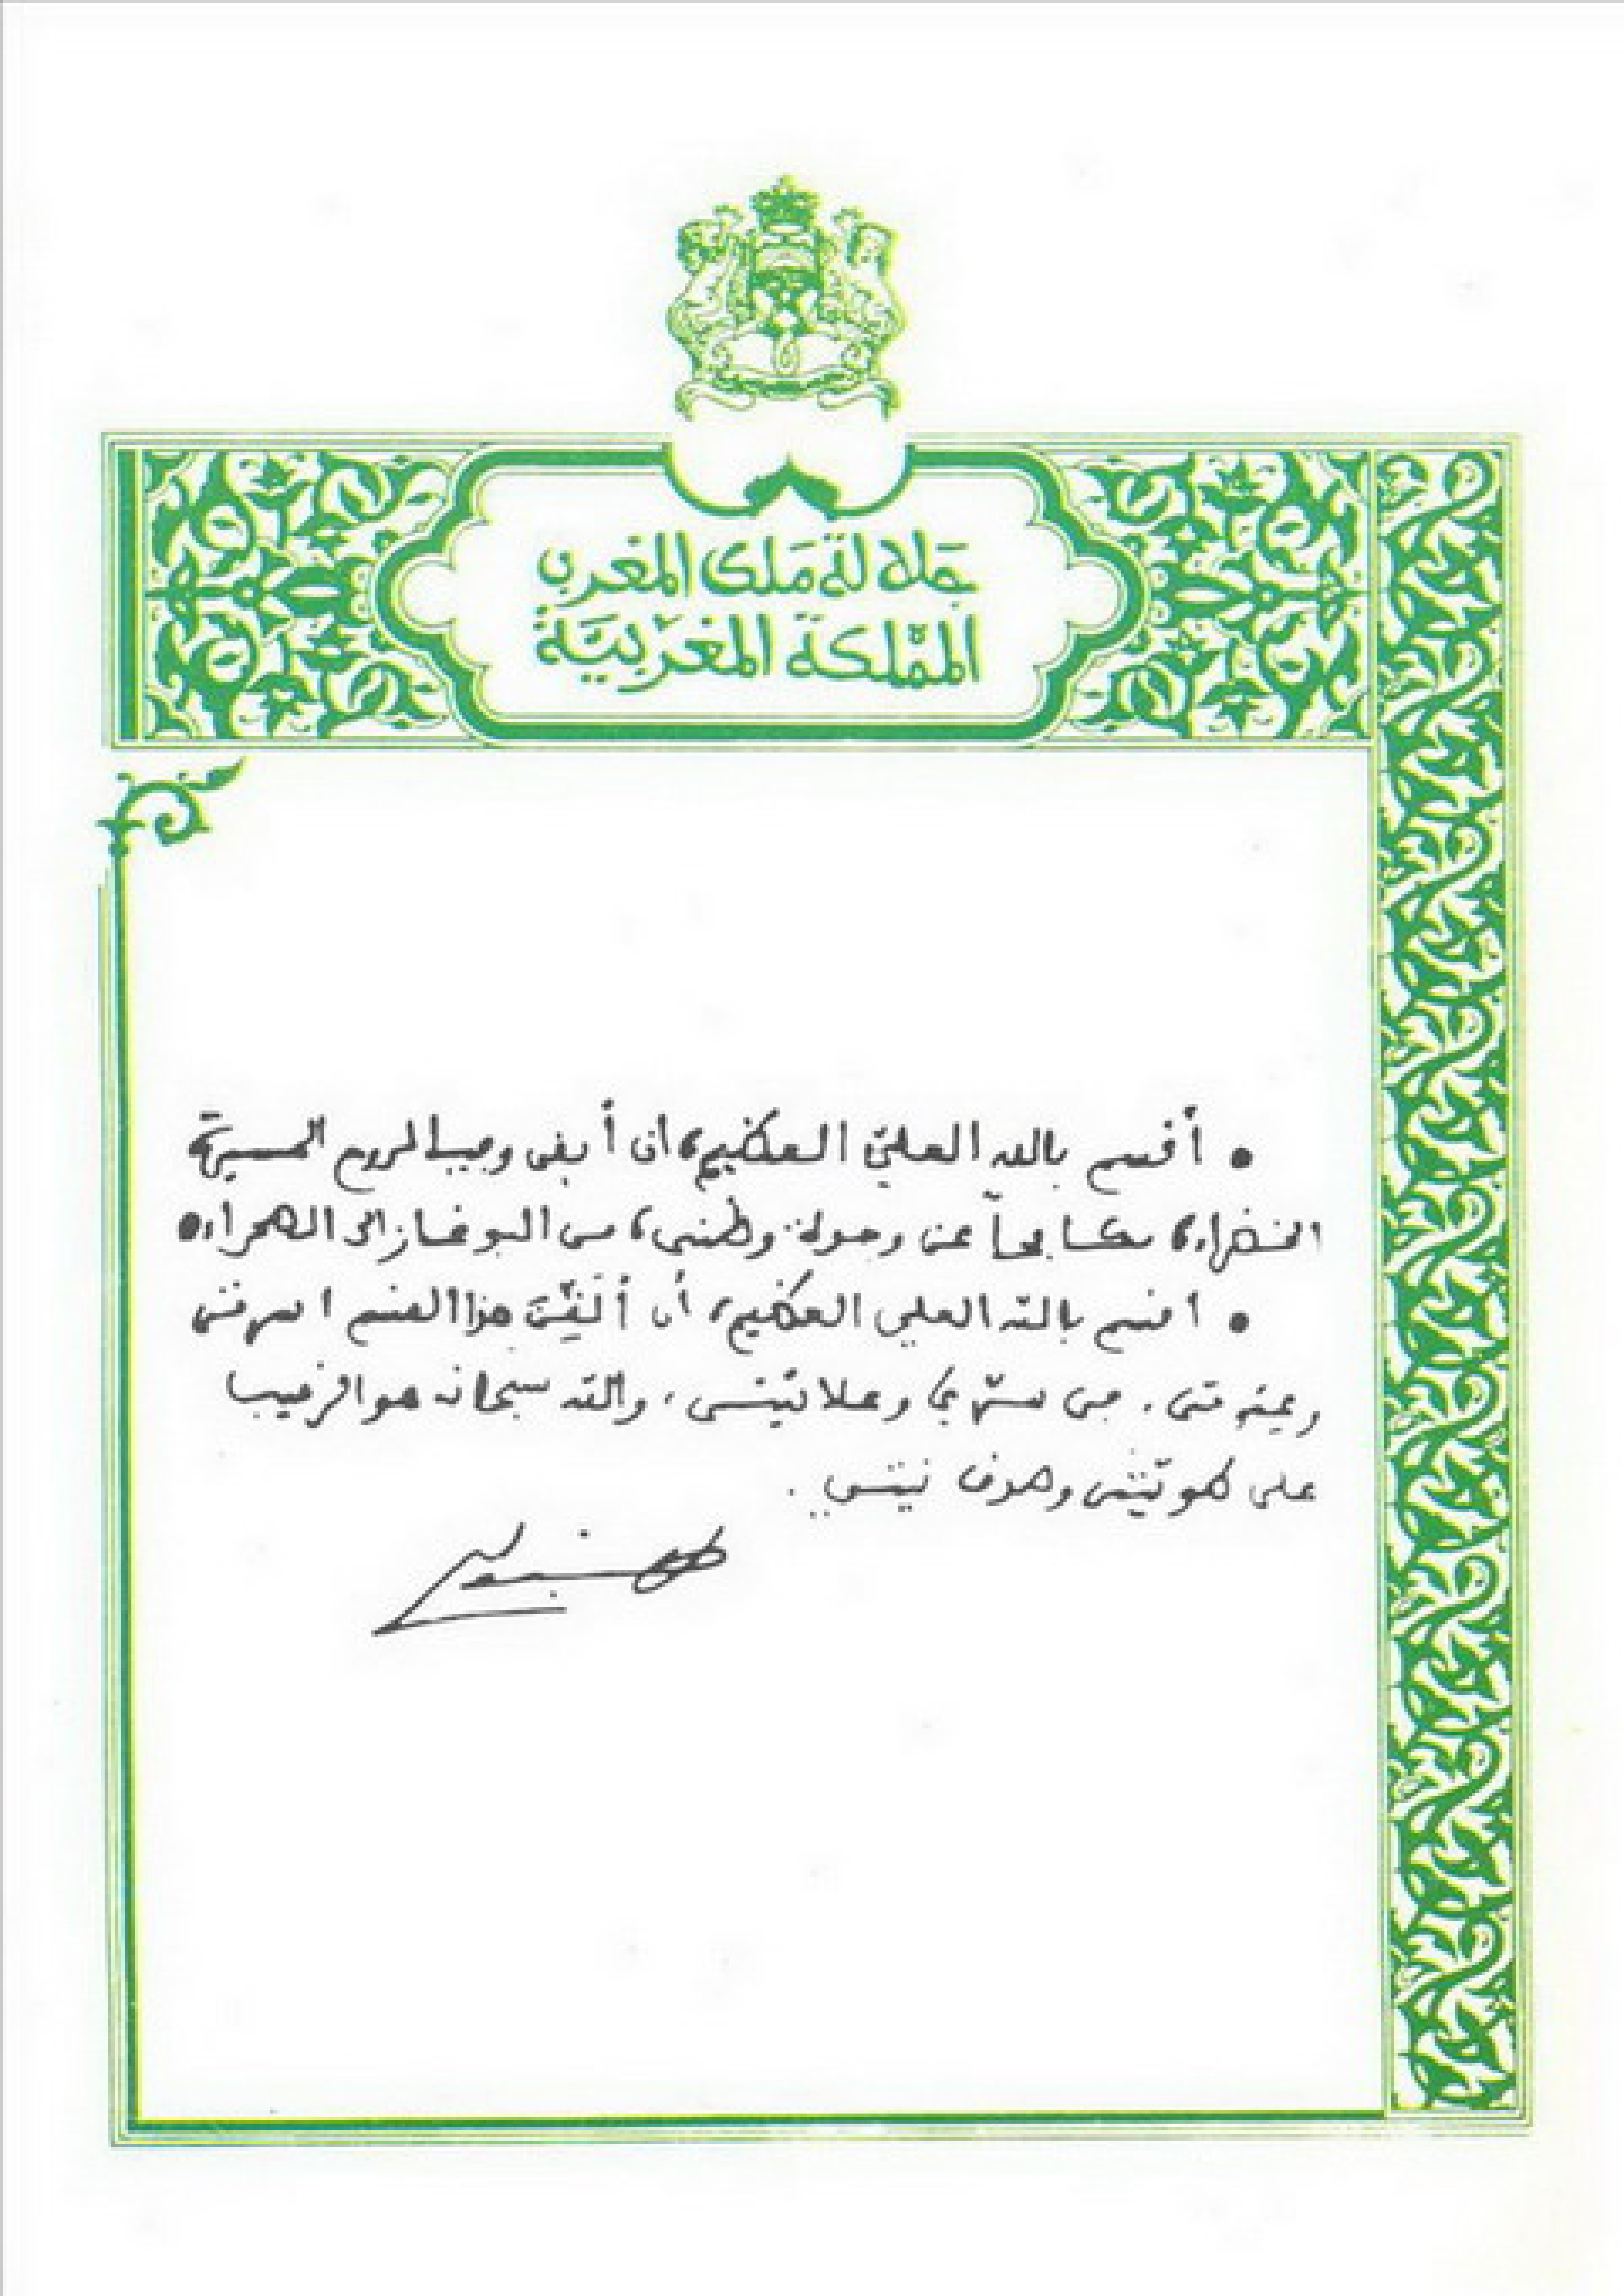 جلالة ملك المغرب
المملكة المغربية
• أقسم بالله العليّ العظيم، أن أبقى وفيا لروح المسيرة
الخضراء، مكافحاً عن وحدة وطني، من البوغاز إلى الصحراء.
• أقسم بالله العلي العظيم، أن أُلَقِّنَ هذا القسم أسرتي
وعترتي، في سرّي وعلانيتي، والله سبحانه هو الرقيب
على طويّتي وصدق نيتي.